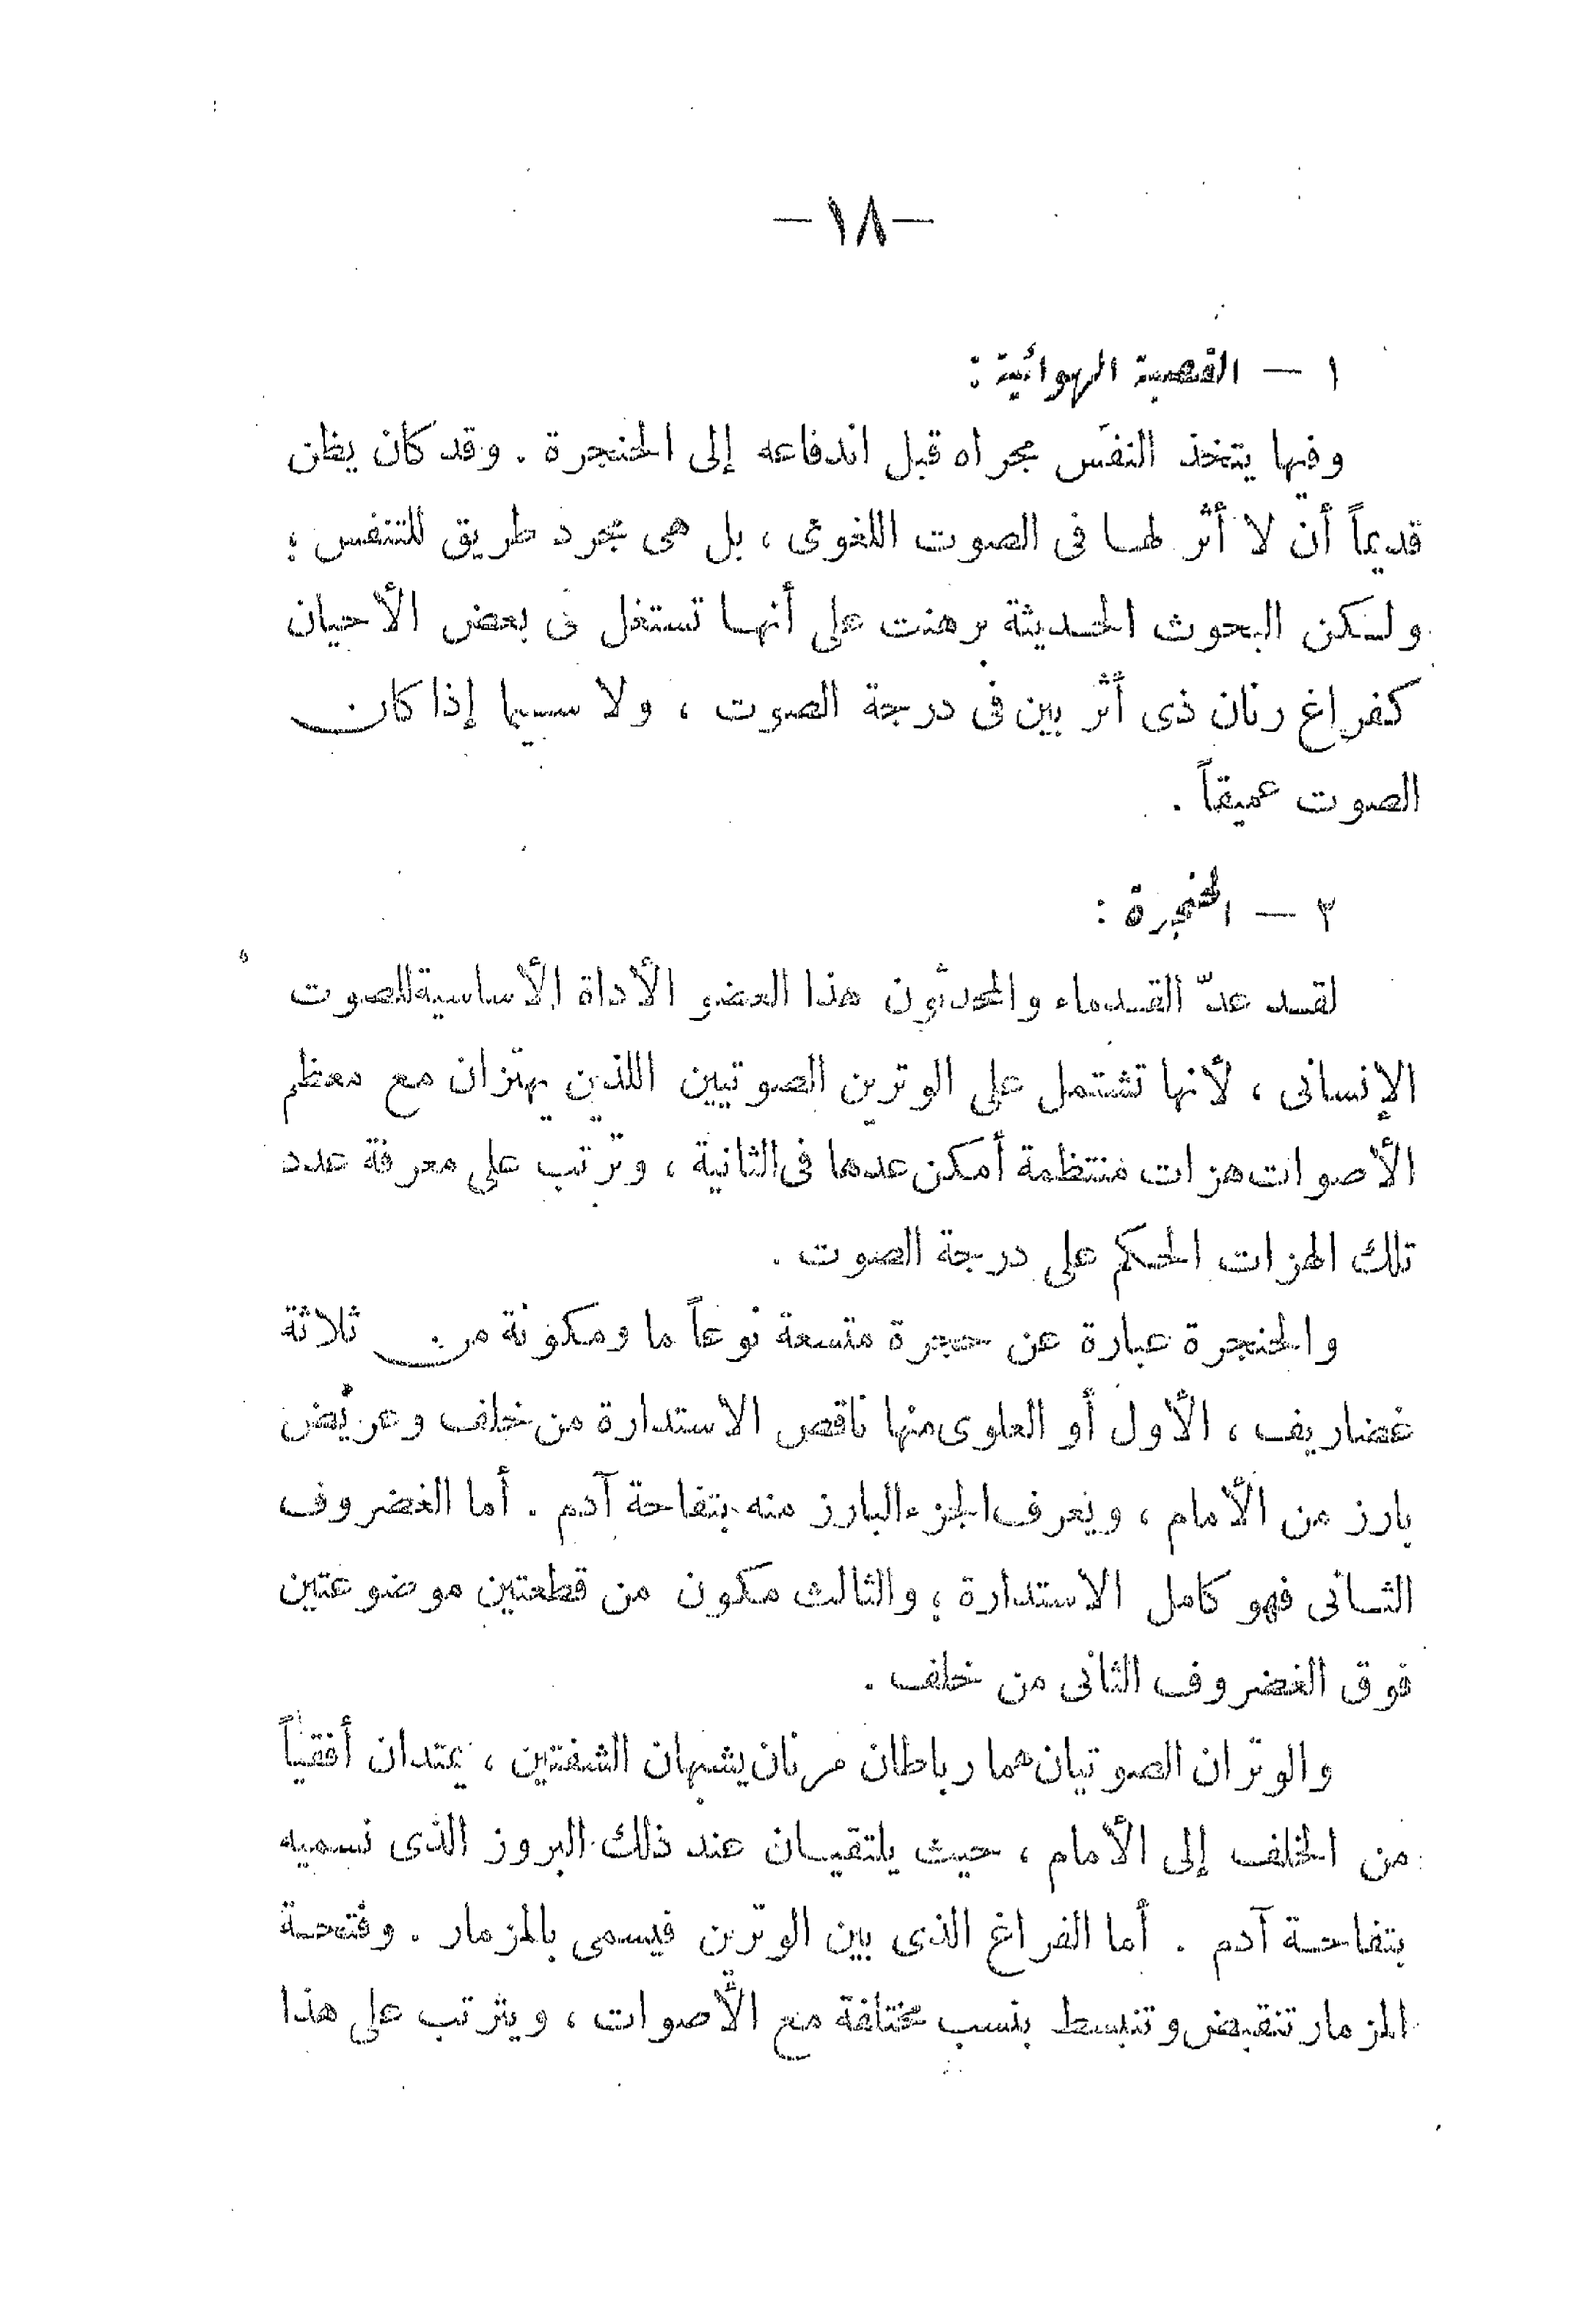 — ١٨ —
١ — القصبة الهوائية :
وفيها يتخذ النفَس مجراه قبل اندفاعه إلى الحنجرة . وقد كان يظن
قديماً أن لا أثر لها فى الصوت اللغوى ، بل هى مجرد طريق للتنفس ؛
ولكن البحوث الحديثة برهنت على أنها تستغل فى بعض الأحيان
كفراغ رنان ذى أثر بين فى درجة الصوت ، ولا سيما إذا كان
الصوت عميقاً .
٢ — الحنجرة :
لقد عدّ القدماء والمحدثون هذا العضو الأداة الأساسية للصوت
الإنسانى ، لأنها تشتمل على الوترين الصوتيين اللذين يهتزان مع معظم
الأصوات هزات منتظمة أمكن عدها فى الثانية ، وترتب على معرفة عدد
تلك الهزات الحكم على درجة الصوت .
والحنجرة عبارة عن حجرة متسعة نوعاً ما ومكونة من ثلاثة
غضاريف ، الأول أو العلوى منها ناقص الاستدارة من خلف وعريض
بارز من الأمام ، ويعرف الجزء البارز منه بتفاحة آدم . أما الغضروف
الثانى فهو كامل الاستدارة ؛ والثالث مكون من قطعتين موضوعتين
فوق الغضروف الثانى من خلف .
والوتران الصوتيان هما رباطان مرنان يشبهان الشفتين ، يمتدان أفقياً
من الخلف إلى الأمام ، حيث يلتقيان عند ذلك البروز الذى نسميه
بتفاحة آدم . أما الفراغ الذى بين الوترين فيسمى بالمزمار . وفتحة
المزمار تنقبض وتنبسط بنسب مختلفة مع الأصوات ، ويترتب على هذا